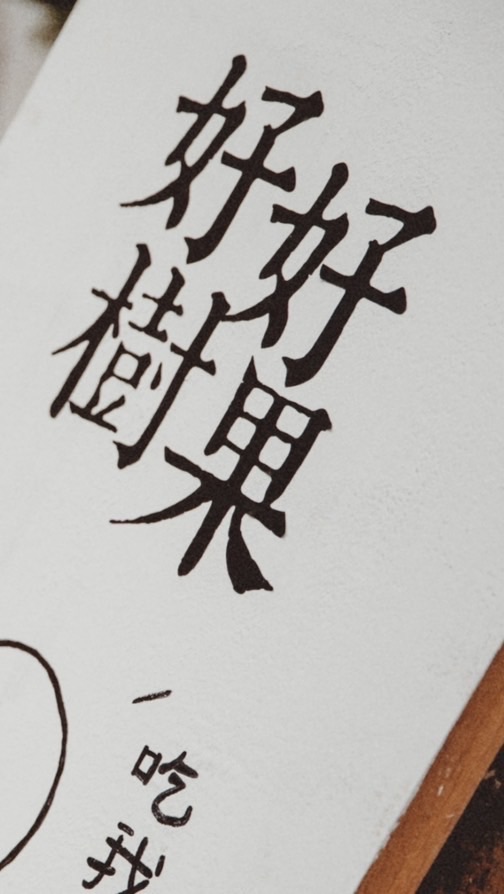 好樹
好果
吃我